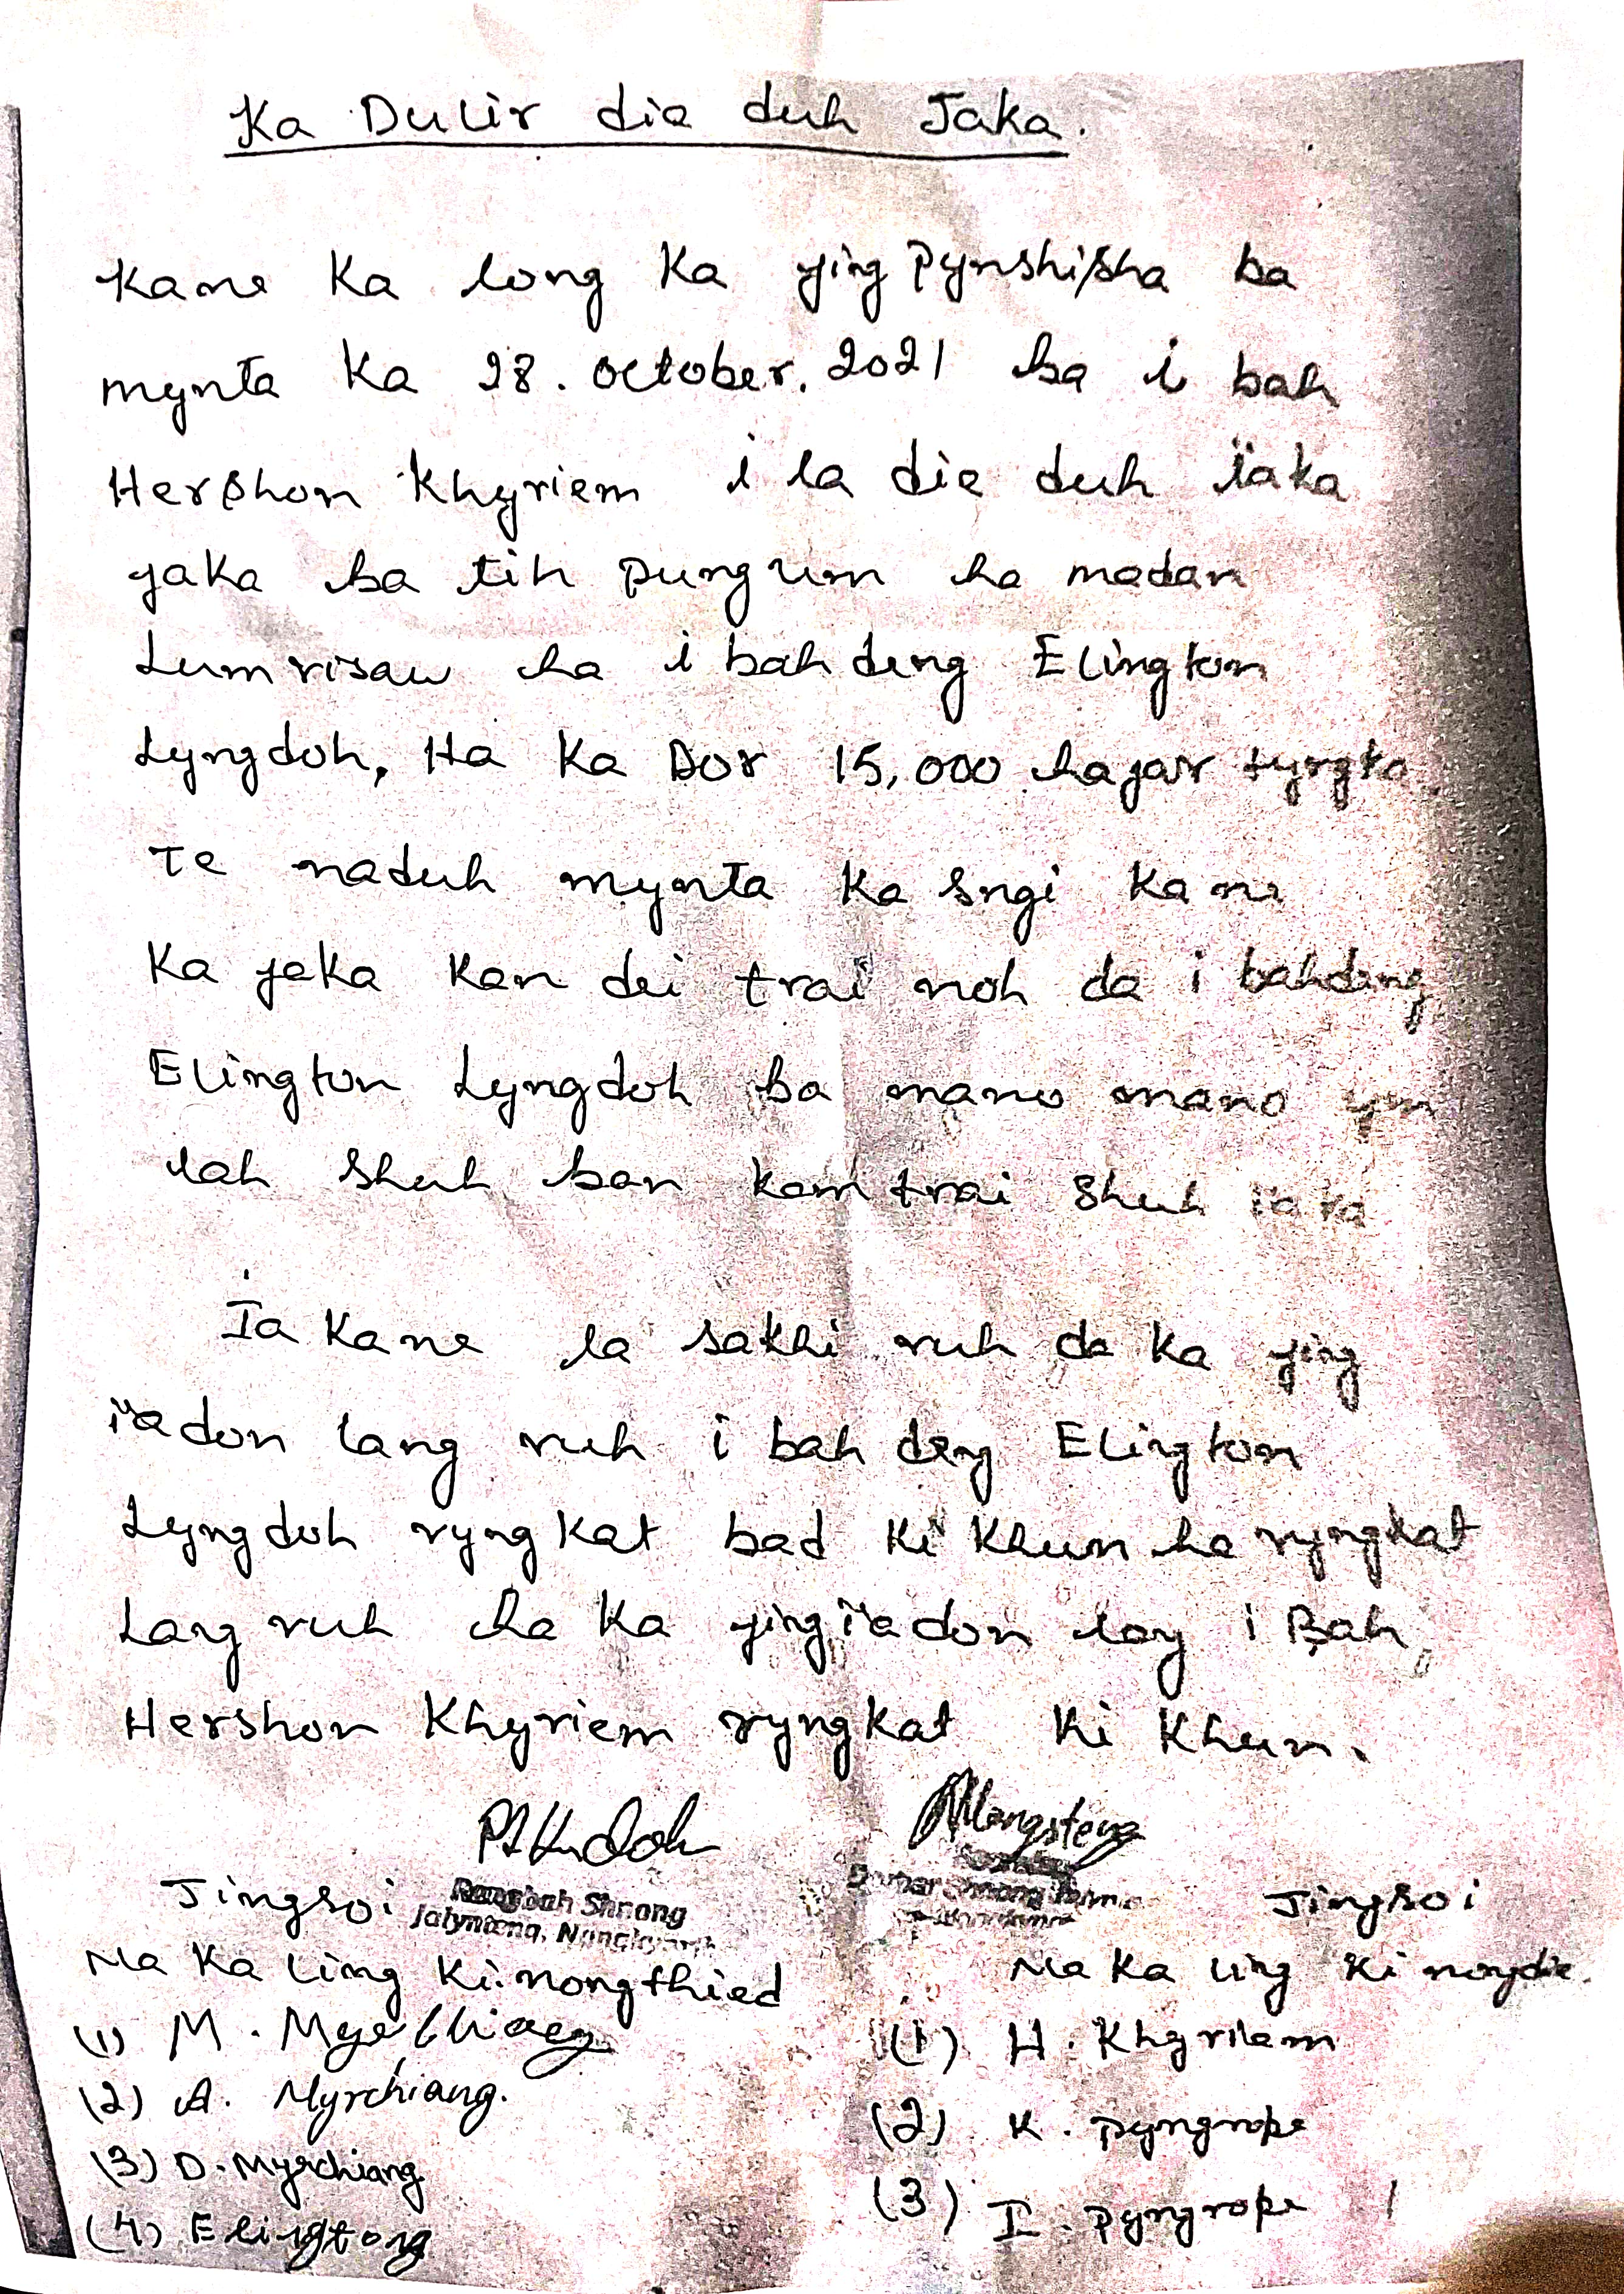 Ka Dulir die duh Jaka.
Kane Ka long Ka jing Pynshisha ba
mynta Ka 28. October. 2021 ba i bah
Hershon Khyriem i la die duh ïaka
jaka ba tih pung um ha madan
Lumrisaw ha i bah deng Elington
Lyngdoh, Ha Ka Dor 15,000 hajar tyngka
Te naduh mynta Ka Sngi Kane
Ka jaka Kan dei trai noh da i bahdeng
Elington Lyngdoh ba mano mano ym
lah Shuh ban kam trai Shuh ïa ka
Ia Kane la sakhi ruh da Ka jing
ïadon lang ruh i bah deng Elington
Lyngdoh ryngkat bad Ki Khun ha ryngkat
Lang ruh ha Ka jingïadon lang i Bah
Hershon Khyriem ryngkat Ki Khun.
Jingsoi
Rangbah Shnong
Jalynteng,
Jingsoi
Na Ka Ling Ki nongthied
Na Ka Ling Ki nongdie.
(1) M.
(1) H. Khyriem
(2) A. Myrchiang.
(2) K. Pyngrope
(3) D. Myrchiang
(3) I. Pyngrope
(4) Elingtong